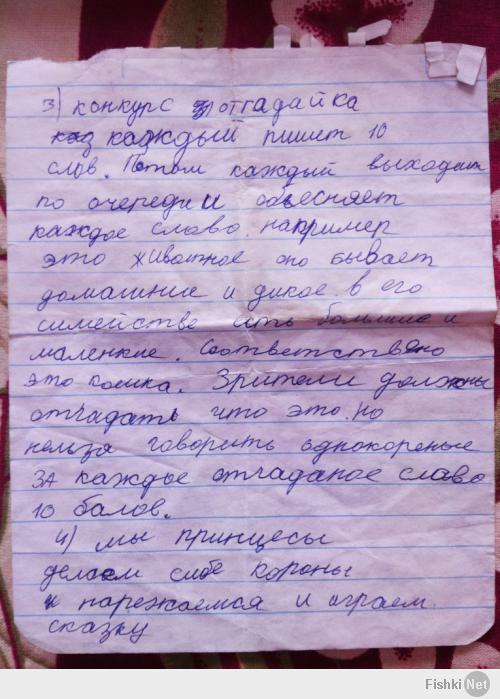 3) конкурс отгадайка
каждый пишет 10
слов. Потом каждый выходит
по очереди и обьесняет
каждое слово. например
это животное оно бывает
домашние и дикое в его
симействе есть большие и
маленкие. Соответственно
это кошка. Зрители должны
отгадать что это. но
нельзя говорить однокореные
ЗА каждое отгаданое слово
10 балов.
4) мы принцесы
делаем себе короны
нарежаемся и играем
сказку
Fishki.Net